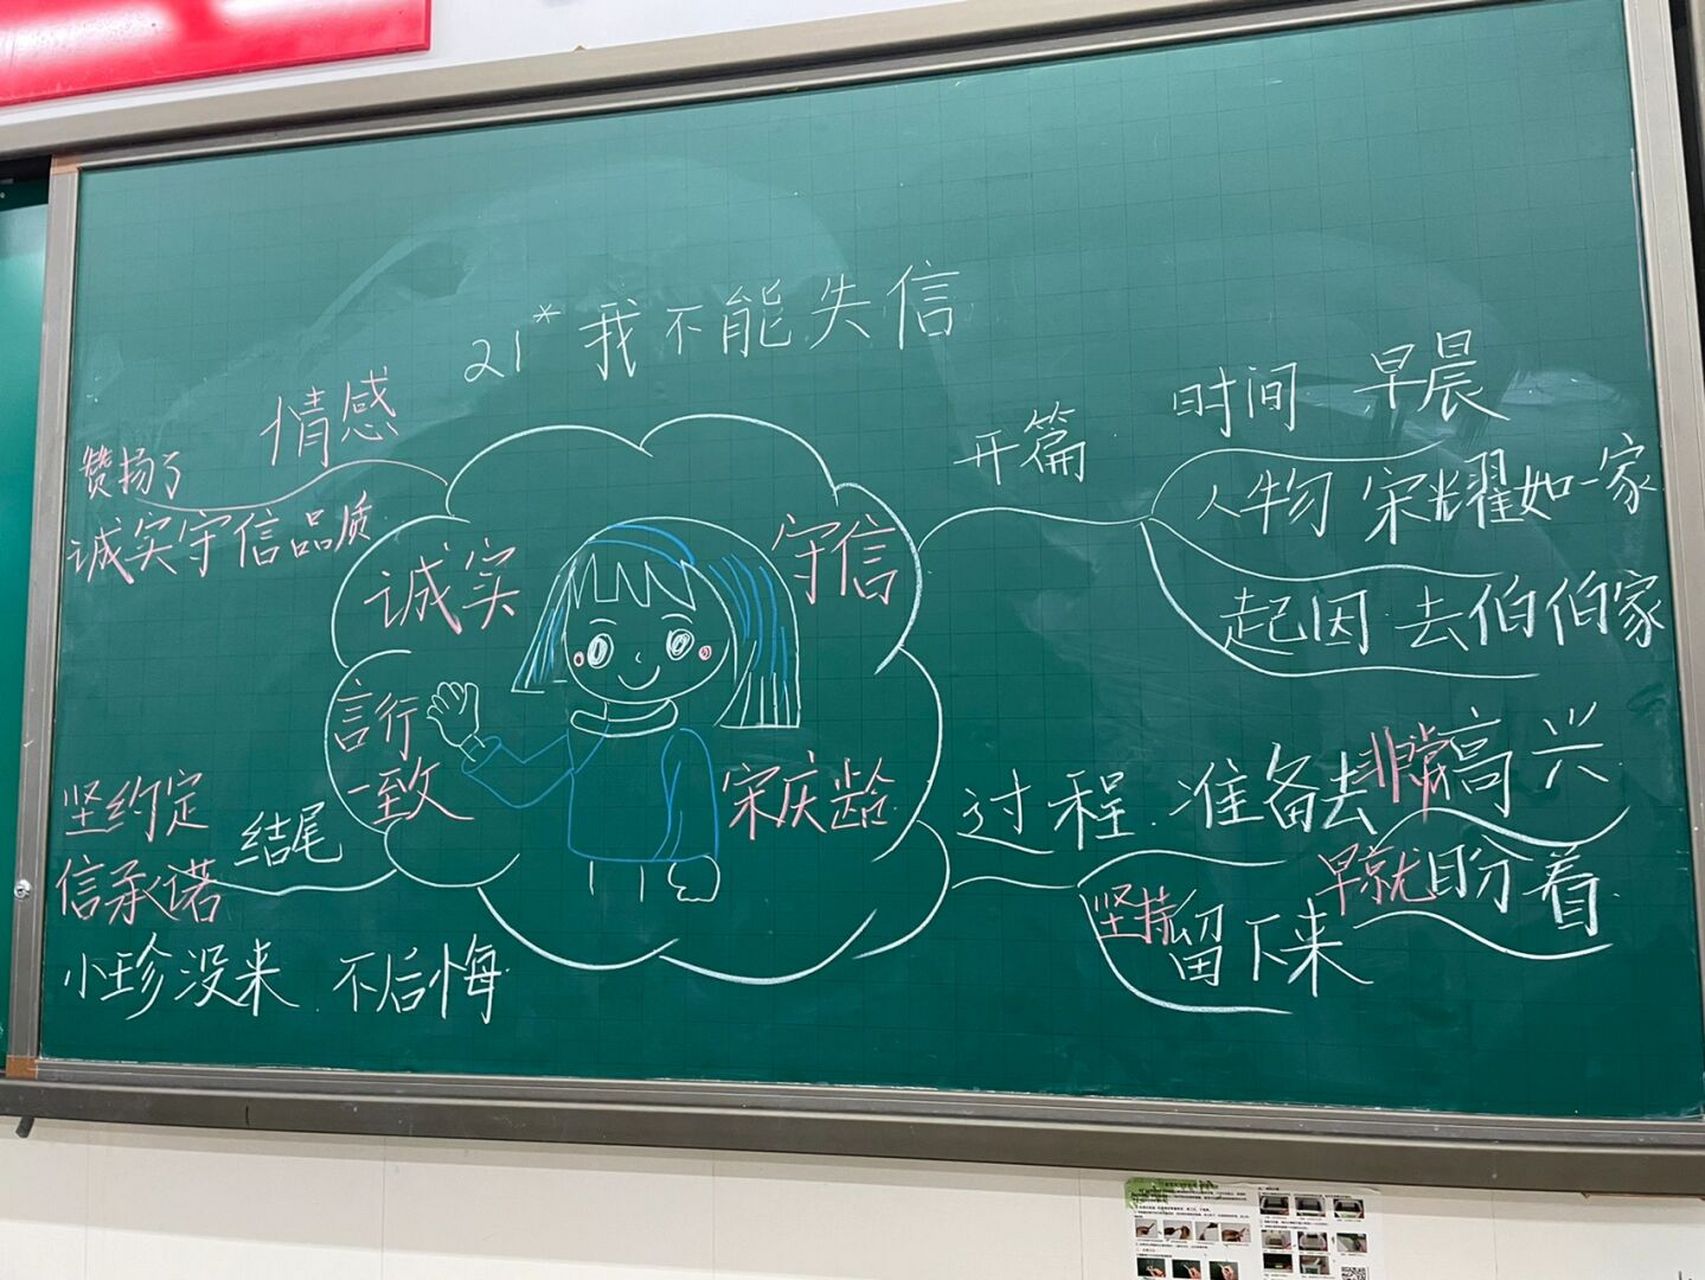 21*我不能失信
情感
赞扬了
诚实守信品质
诚实
守信
言行
一致
宋庆龄
开篇
时间 早晨
人物 宋耀如一家
起因 去伯伯家
过程
准备去非常高兴
早就盼着
坚持留下来
结尾
坚约定
信承诺
小珍没来 不后悔